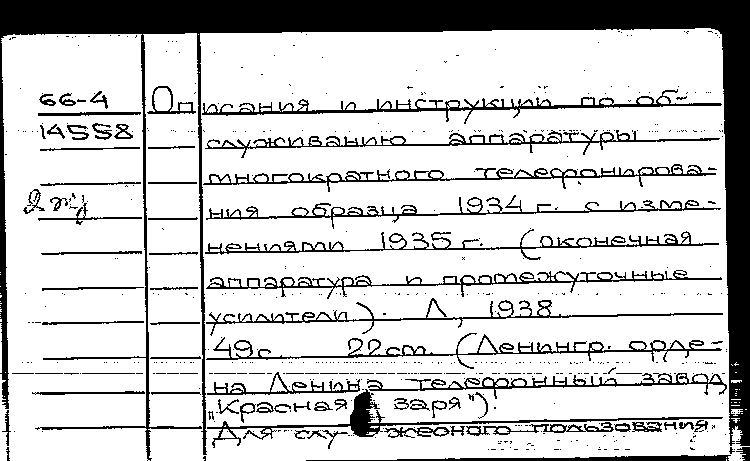 66-4 Описания и инструкции по об-
14558 служиванию аппаратуры
многократного телефонирова=
ния образца 1934 г. с изме=
нениями 1935 г. (оконечная
аппаратура и промежуточные
усилители). Л, 1938.
49с. 22см. (Ленингр. орде=
на Ленина телефонный завод
"Красная заря").
Для служебного пользования.